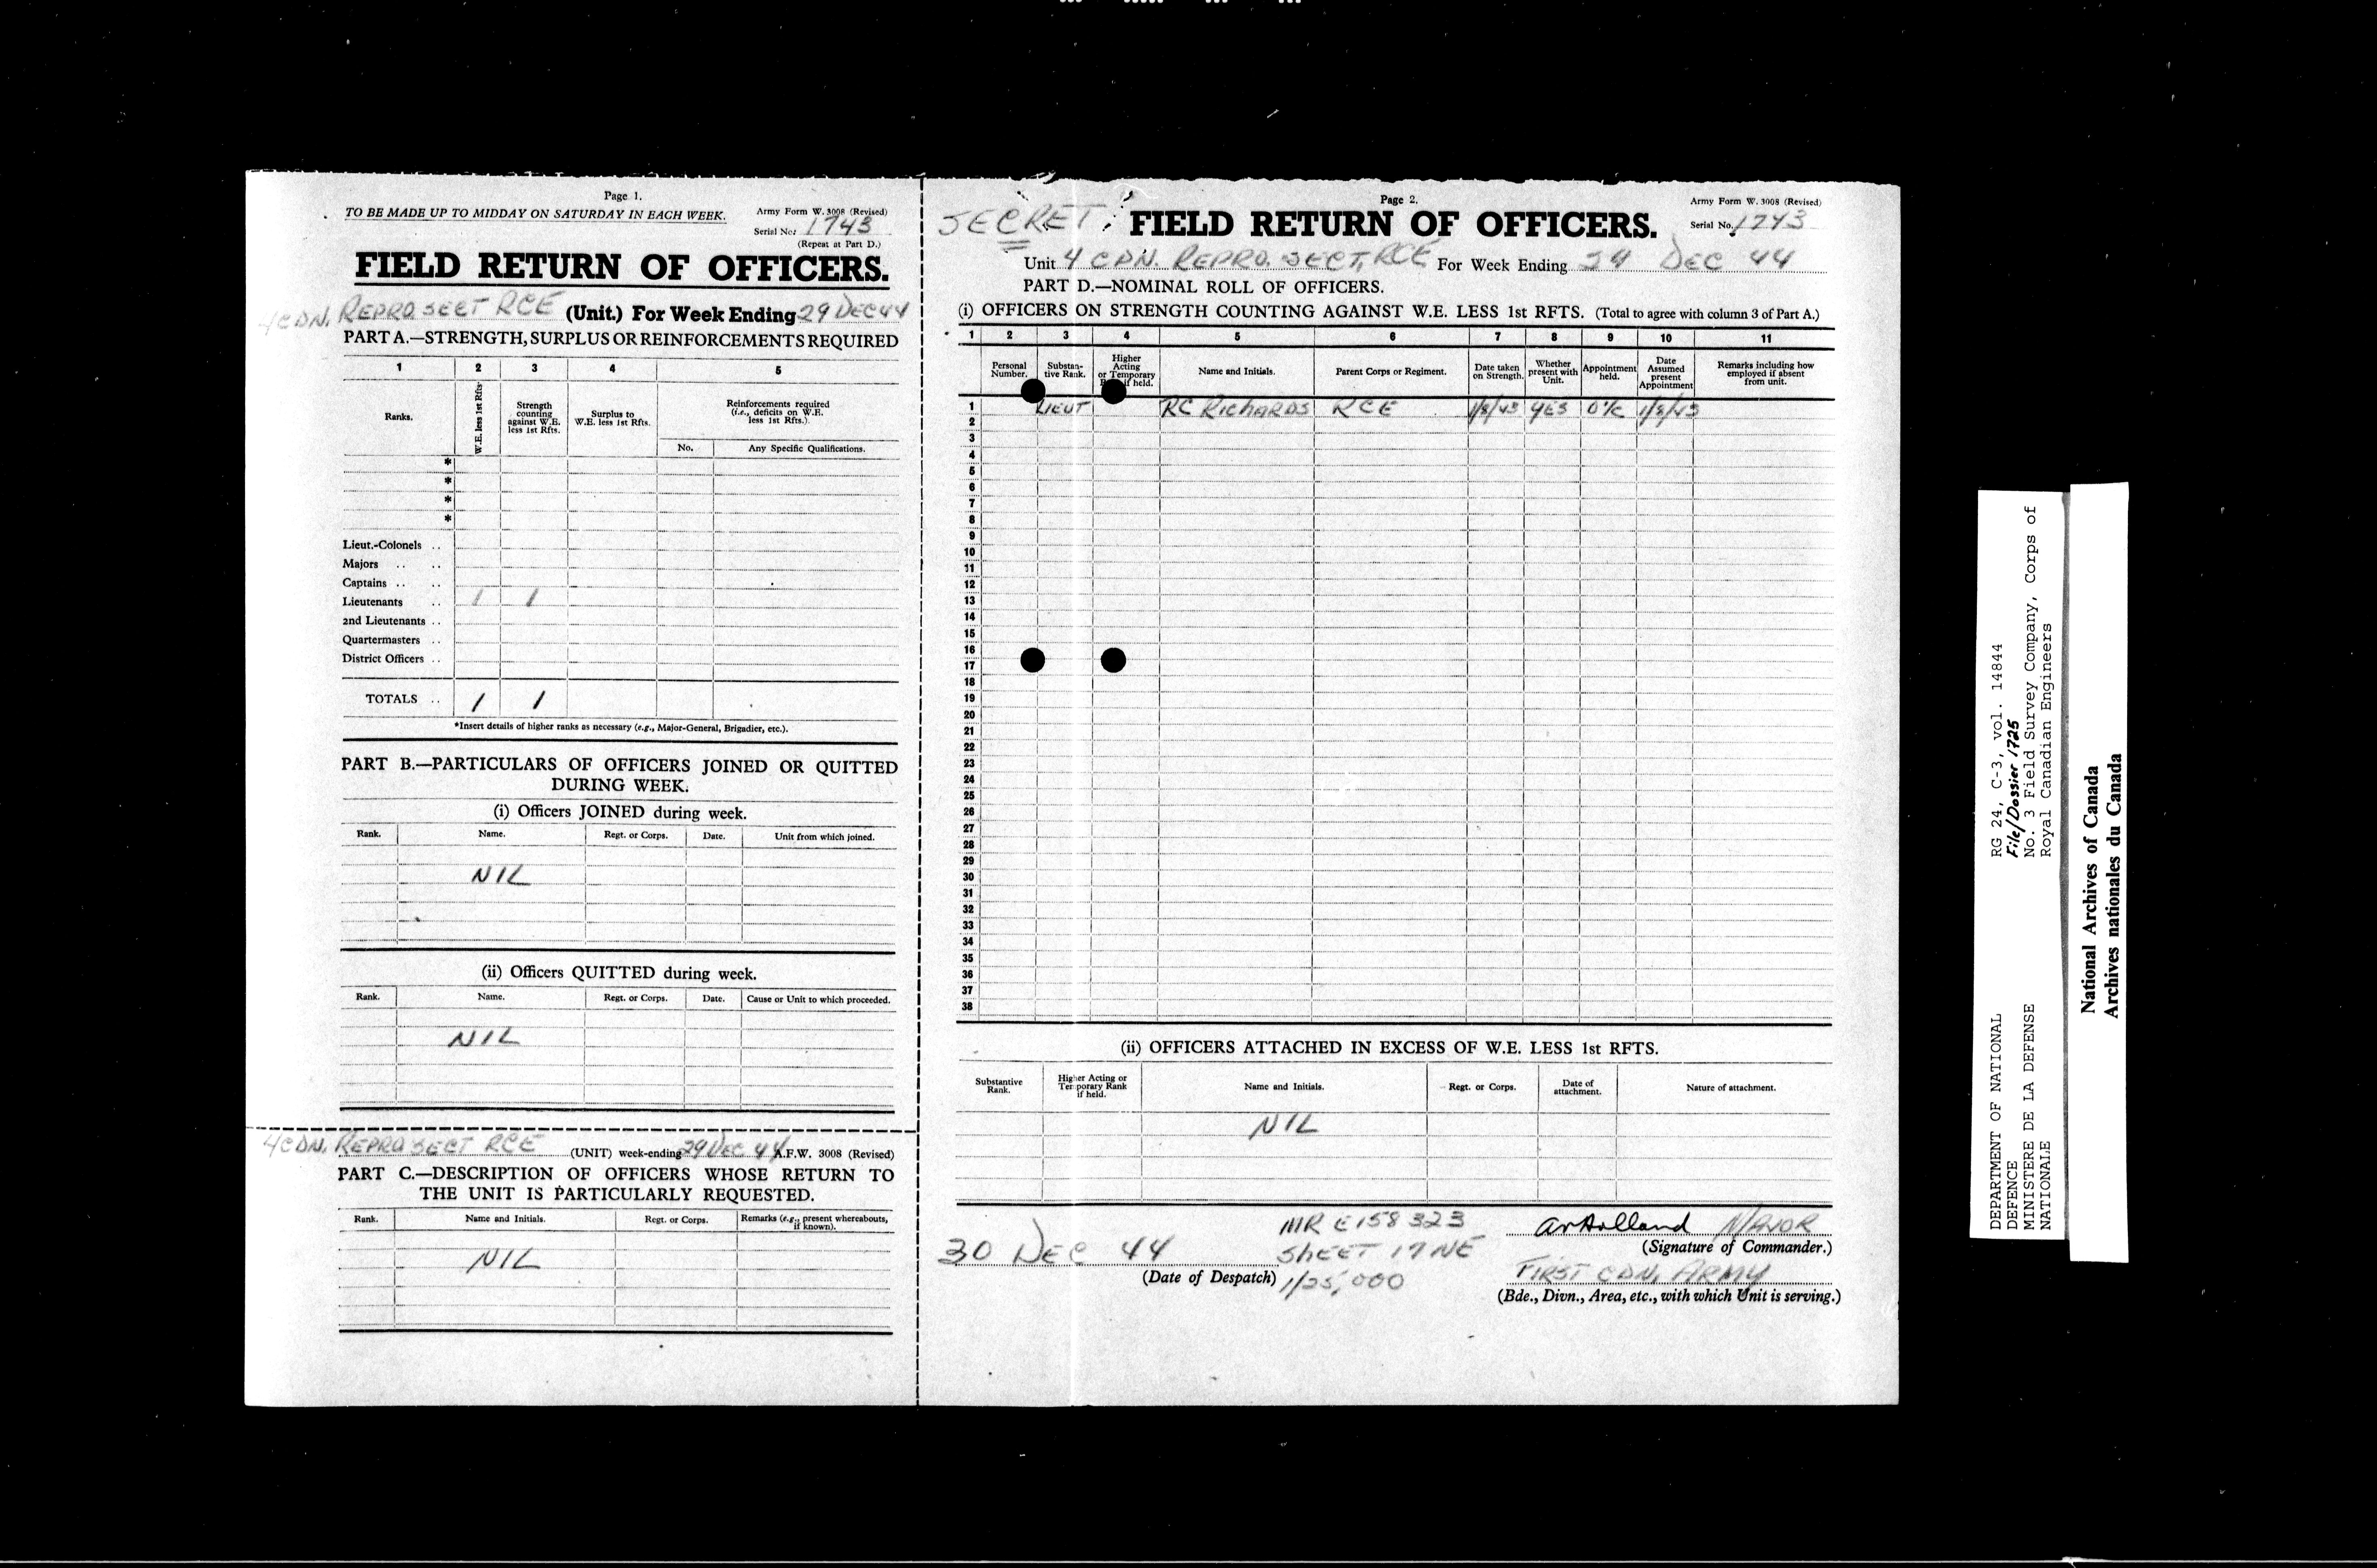 Page 1.
TO BE MADE UP TO MIDDAY ON SATURDAY IN EACH WEEK.
Army Form W. 3008 (Revised)
Serial No. 1743
(Repeat at Part D.)
FIELD RETURN OF OFFICERS.
4 CDN. REPRO SECT RCE (Unit.) For Week Ending 29 DEC 44
PART A.—STRENGTH, SURPLUS OR REINFORCEMENTS REQUIRED
1 2 3 4 5
Ranks.
W.E. less 1st Rfts.
Strength counting against W.E. less 1st Rfts.
Surplus to W.E. less 1st Rfts.
Reinforcements required (i.e., deficits on W.E. less 1st Rfts.).
No.
Any Specific Qualifications.
*
*
*
*
Lieut.-Colonels ..
Majors .. ..
Captains .. ..
Lieutenants .. 1 1
2nd Lieutenants ..
Quartermasters ..
District Officers ..
TOTALS .. 1 1
*Insert details of higher ranks as necessary (e.g., Major-General, Brigadier, etc.).
PART B.—PARTICULARS OF OFFICERS JOINED OR QUITTED
DURING WEEK.
(i) Officers JOINED during week.
Rank. Name. Regt. or Corps. Date. Unit from which joined.
NIL
(ii) Officers QUITTED during week.
Rank. Name. Regt. or Corps. Date. Cause or Unit to which proceeded.
NIL
4 CDN. REPRO SECT RCE (UNIT) week-ending 29 DEC 44 A.F.W. 3008 (Revised)
PART C.—DESCRIPTION OF OFFICERS WHOSE RETURN TO
THE UNIT IS PARTICULARLY REQUESTED.
Rank. Name and Initials. Regt. or Corps. Remarks (e.g., present whereabouts, if known).
NIL
Page 2.
Army Form W. 3008 (Revised)
SECRET. FIELD RETURN OF OFFICERS.
Serial No. 1743
Unit 4 CDN. REPRO. SECT, RCE For Week Ending 29 DEC 44
PART D.—NOMINAL ROLL OF OFFICERS.
(i) OFFICERS ON STRENGTH COUNTING AGAINST W.E. LESS 1st RFTS. (Total to agree with column 3 of Part A.)
1 2 3 4 5 6 7 8 9 10 11
Personal Number.
Substantive Rank.
Higher Acting or Temporary if held.
Name and Initials.
Parent Corps or Regiment.
Date taken on Strength.
Whether present with Unit.
Appointment held.
Date Assumed present Appointment
Remarks including how employed if absent from unit.
1 LIEUT RC RICHARDS RCE 1/8/43 YES O/C 1/8/43
2
3
4
5
6
7
8
9
10
11
12
13
14
15
16
17
18
19
20
21
22
23
24
25
26
27
28
29
30
31
32
33
34
35
36
37
38
(ii) OFFICERS ATTACHED IN EXCESS OF W.E. LESS 1st RFTS.
Substantive Rank.
Higher Acting or Temporary Rank if held.
Name and Initials.
Regt. or Corps.
Date of attachment.
Nature of attachment.
NIL
30 DEC 44
(Date of Despatch)
MR E158323
SHEET 17 NE
1/25,000
MAJOR
(Signature of Commander.)
FIRST CDN. ARMY
(Bde., Divn., Area, etc., with which Unit is serving.)
DEPARTMENT OF NATIONAL
DEFENCE
MINISTERE DE LA DEFENSE
NATIONALE
RG 24, C-3, vol. 14844
File/Dossier 1725
No. 3 Field Survey Company, Corps of
Royal Canadian Engineers
National Archives of Canada
Archives nationales du Canada